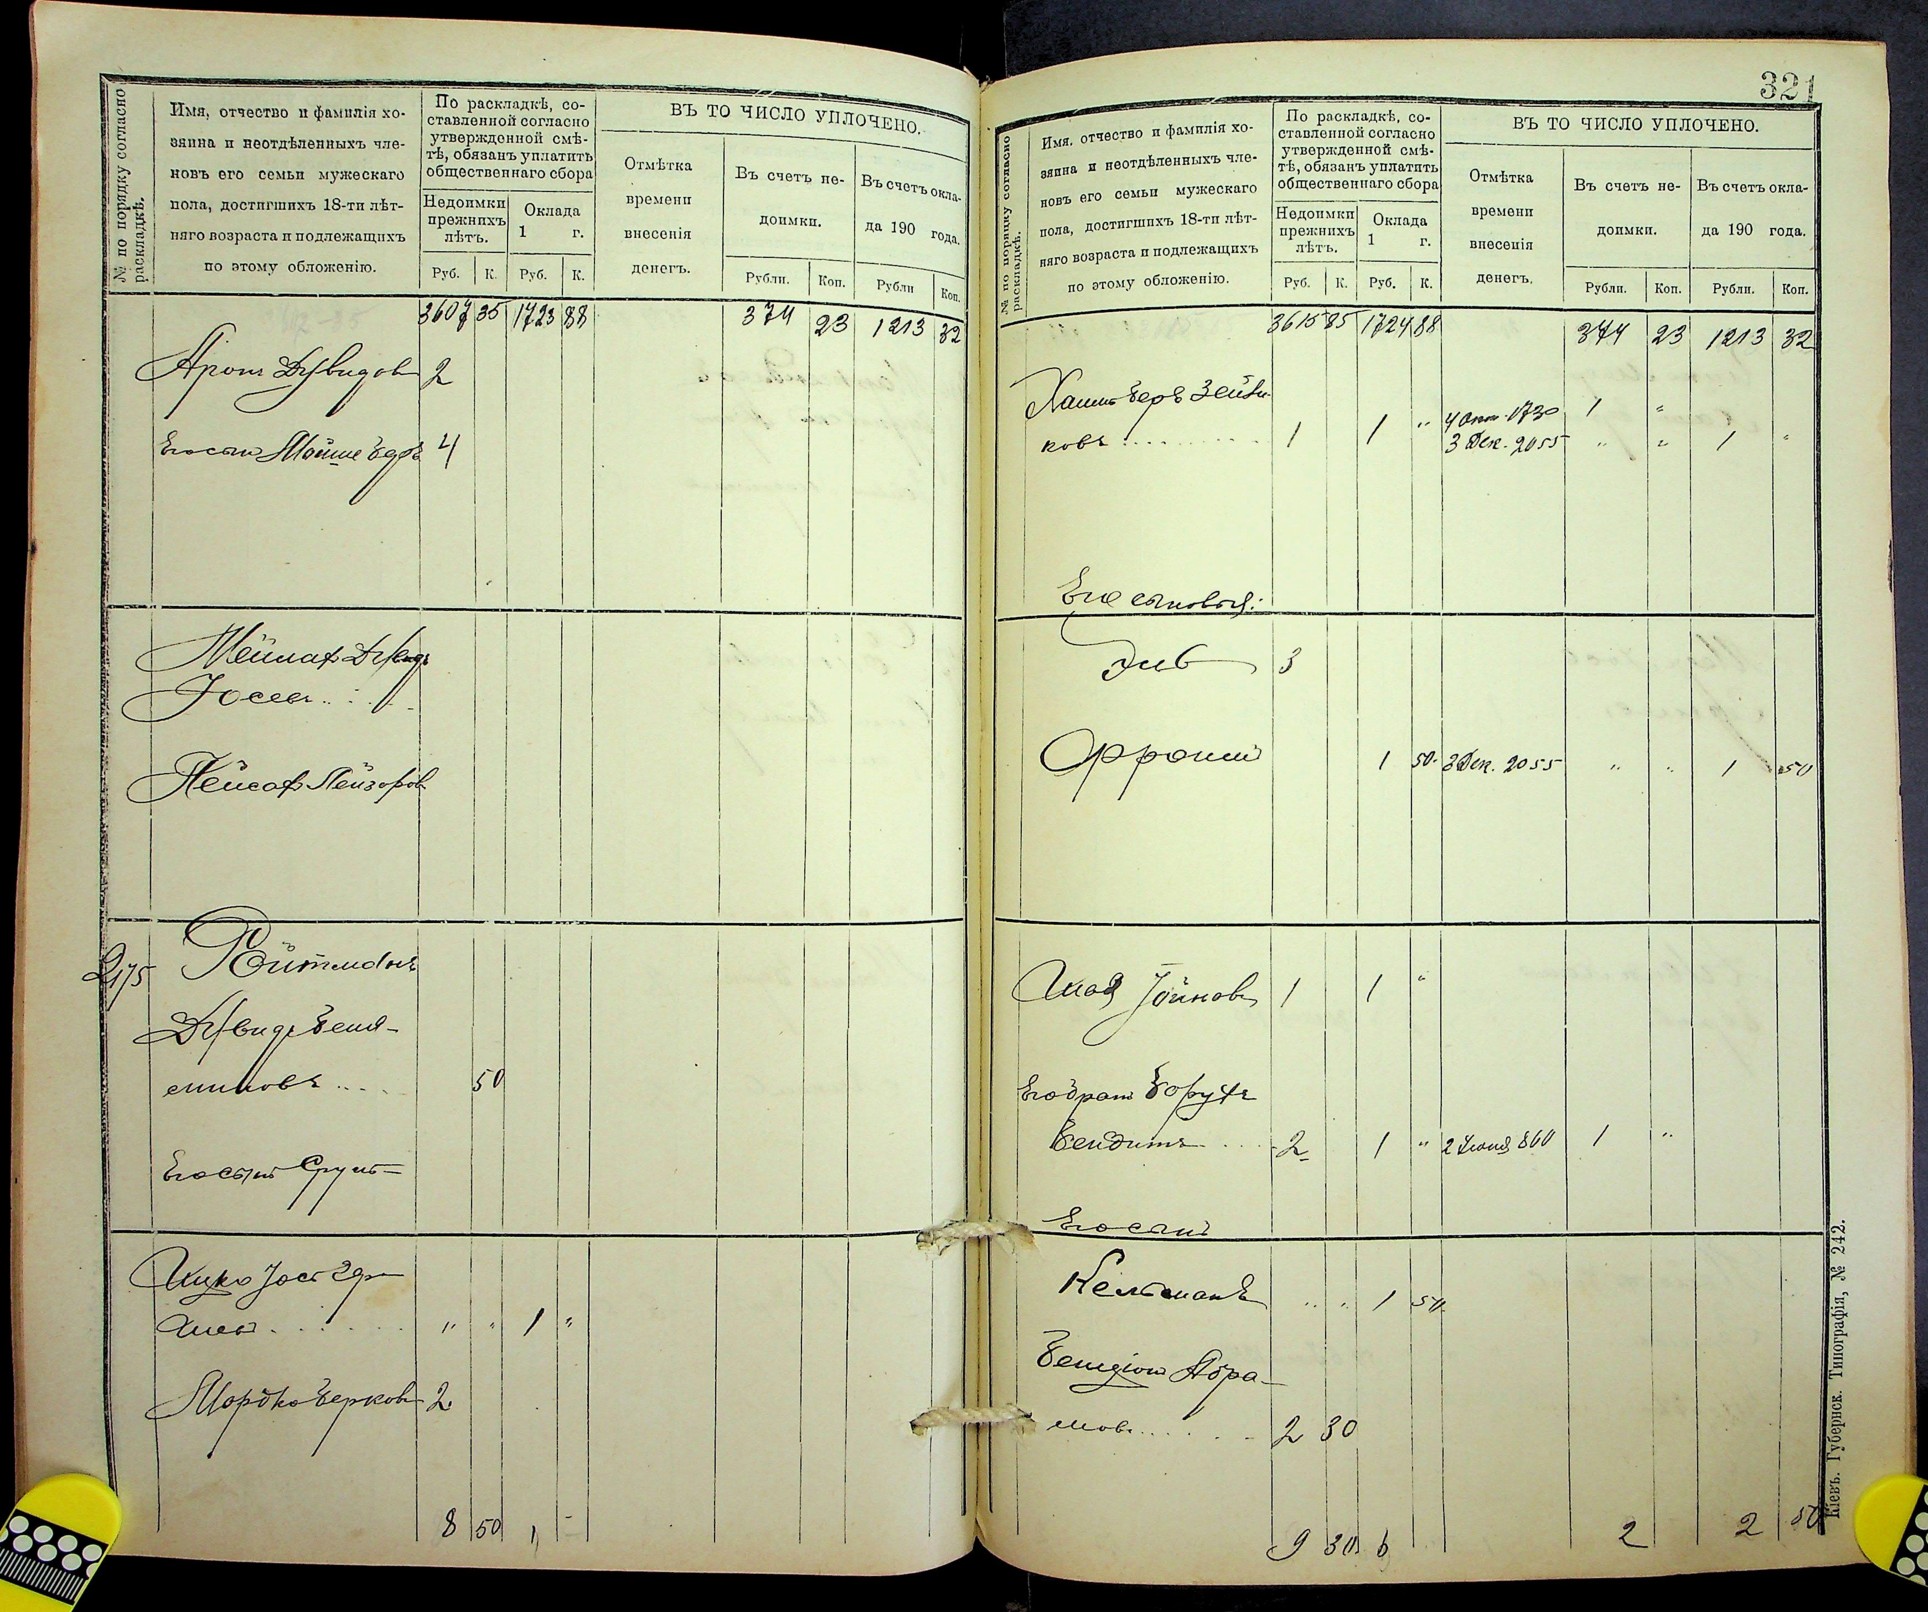 № по порядку согласно раскладкѣ.
Имя, отчество и фамилія хо-
зяина и неотдѣленныхъ чле-
новъ его семьи мужескаго
пола, достигшихъ 18-ти лѣт-
няго возраста и подлежащихъ
по этому обложенію.
По раскладкѣ, со-
ставленной согласно
утвержденной смѣ-
тѣ, обязанъ уплатить
общественнаго сбора
Недоимки
прежнихъ
лѣтъ.
Оклада
1 г.
Руб. К. Руб. К.
ВЪ ТО ЧИСЛО УПЛОЧЕНО.
Отмѣтка
времени
внесенія
денегъ.
Въ счетъ не-
доимки.
Въ счетъ окла-
да 190 года.
Рубли. Коп. Рубли Коп.
3607 35 1723 88 374 23 1213 32
Аронъ Дувидов 2
Его сынъ Мойше 4
Мейлах Дувидъ
Іосевъ
Пейсах Лейзоров
2175 Ройтманъ
Дувидъ Веніа-
миновъ 50
Его сынъ Сруль
Ицко Іос
" " 1 "
Мордко Берковъ 2
8 50 1 -
321
№ по порядку согласно раскладкѣ.
Имя, отчество и фамилія хо-
зяина и неотдѣленныхъ чле-
новъ его семьи мужескаго
пола, достигшихъ 18-ти лѣт-
няго возраста и подлежащихъ
по этому обложенію.
По раскладкѣ, со-
ставленной согласно
утвержденной смѣ-
тѣ, обязанъ уплатить
общественнаго сбора
Недоимки
прежнихъ
лѣтъ.
Оклада
1 г.
Руб. К. Руб. К.
ВЪ ТО ЧИСЛО УПЛОЧЕНО.
Отмѣтка
времени
внесенія
денегъ.
Въ счетъ не-
доимки.
Въ счетъ окла-
да 190 года.
Рубли. Коп. Рубли. Коп.
3615 85 1724 88 374 23 1213 32
Хаимъ Беръ Зейли-
4 Окт. 1730 1 "
ковъ 1 1 " 3 Дек. 2055 " " 1 "
Его сыновья:
Лейб 3
Фроимъ 1 50 3 Дек. 2055 " " 1 50
Іойновъ 1 1 "
Его братъ Борухъ
Бендитъ 2 1 " 2 Іюня 860 1 "
Его сынъ
Кельманъ " " 1 50
Бенціонъ Абра-
мовъ 2 30
9 30 6 2 2 50
Кіевъ. Губернск. Типографія, № 242.